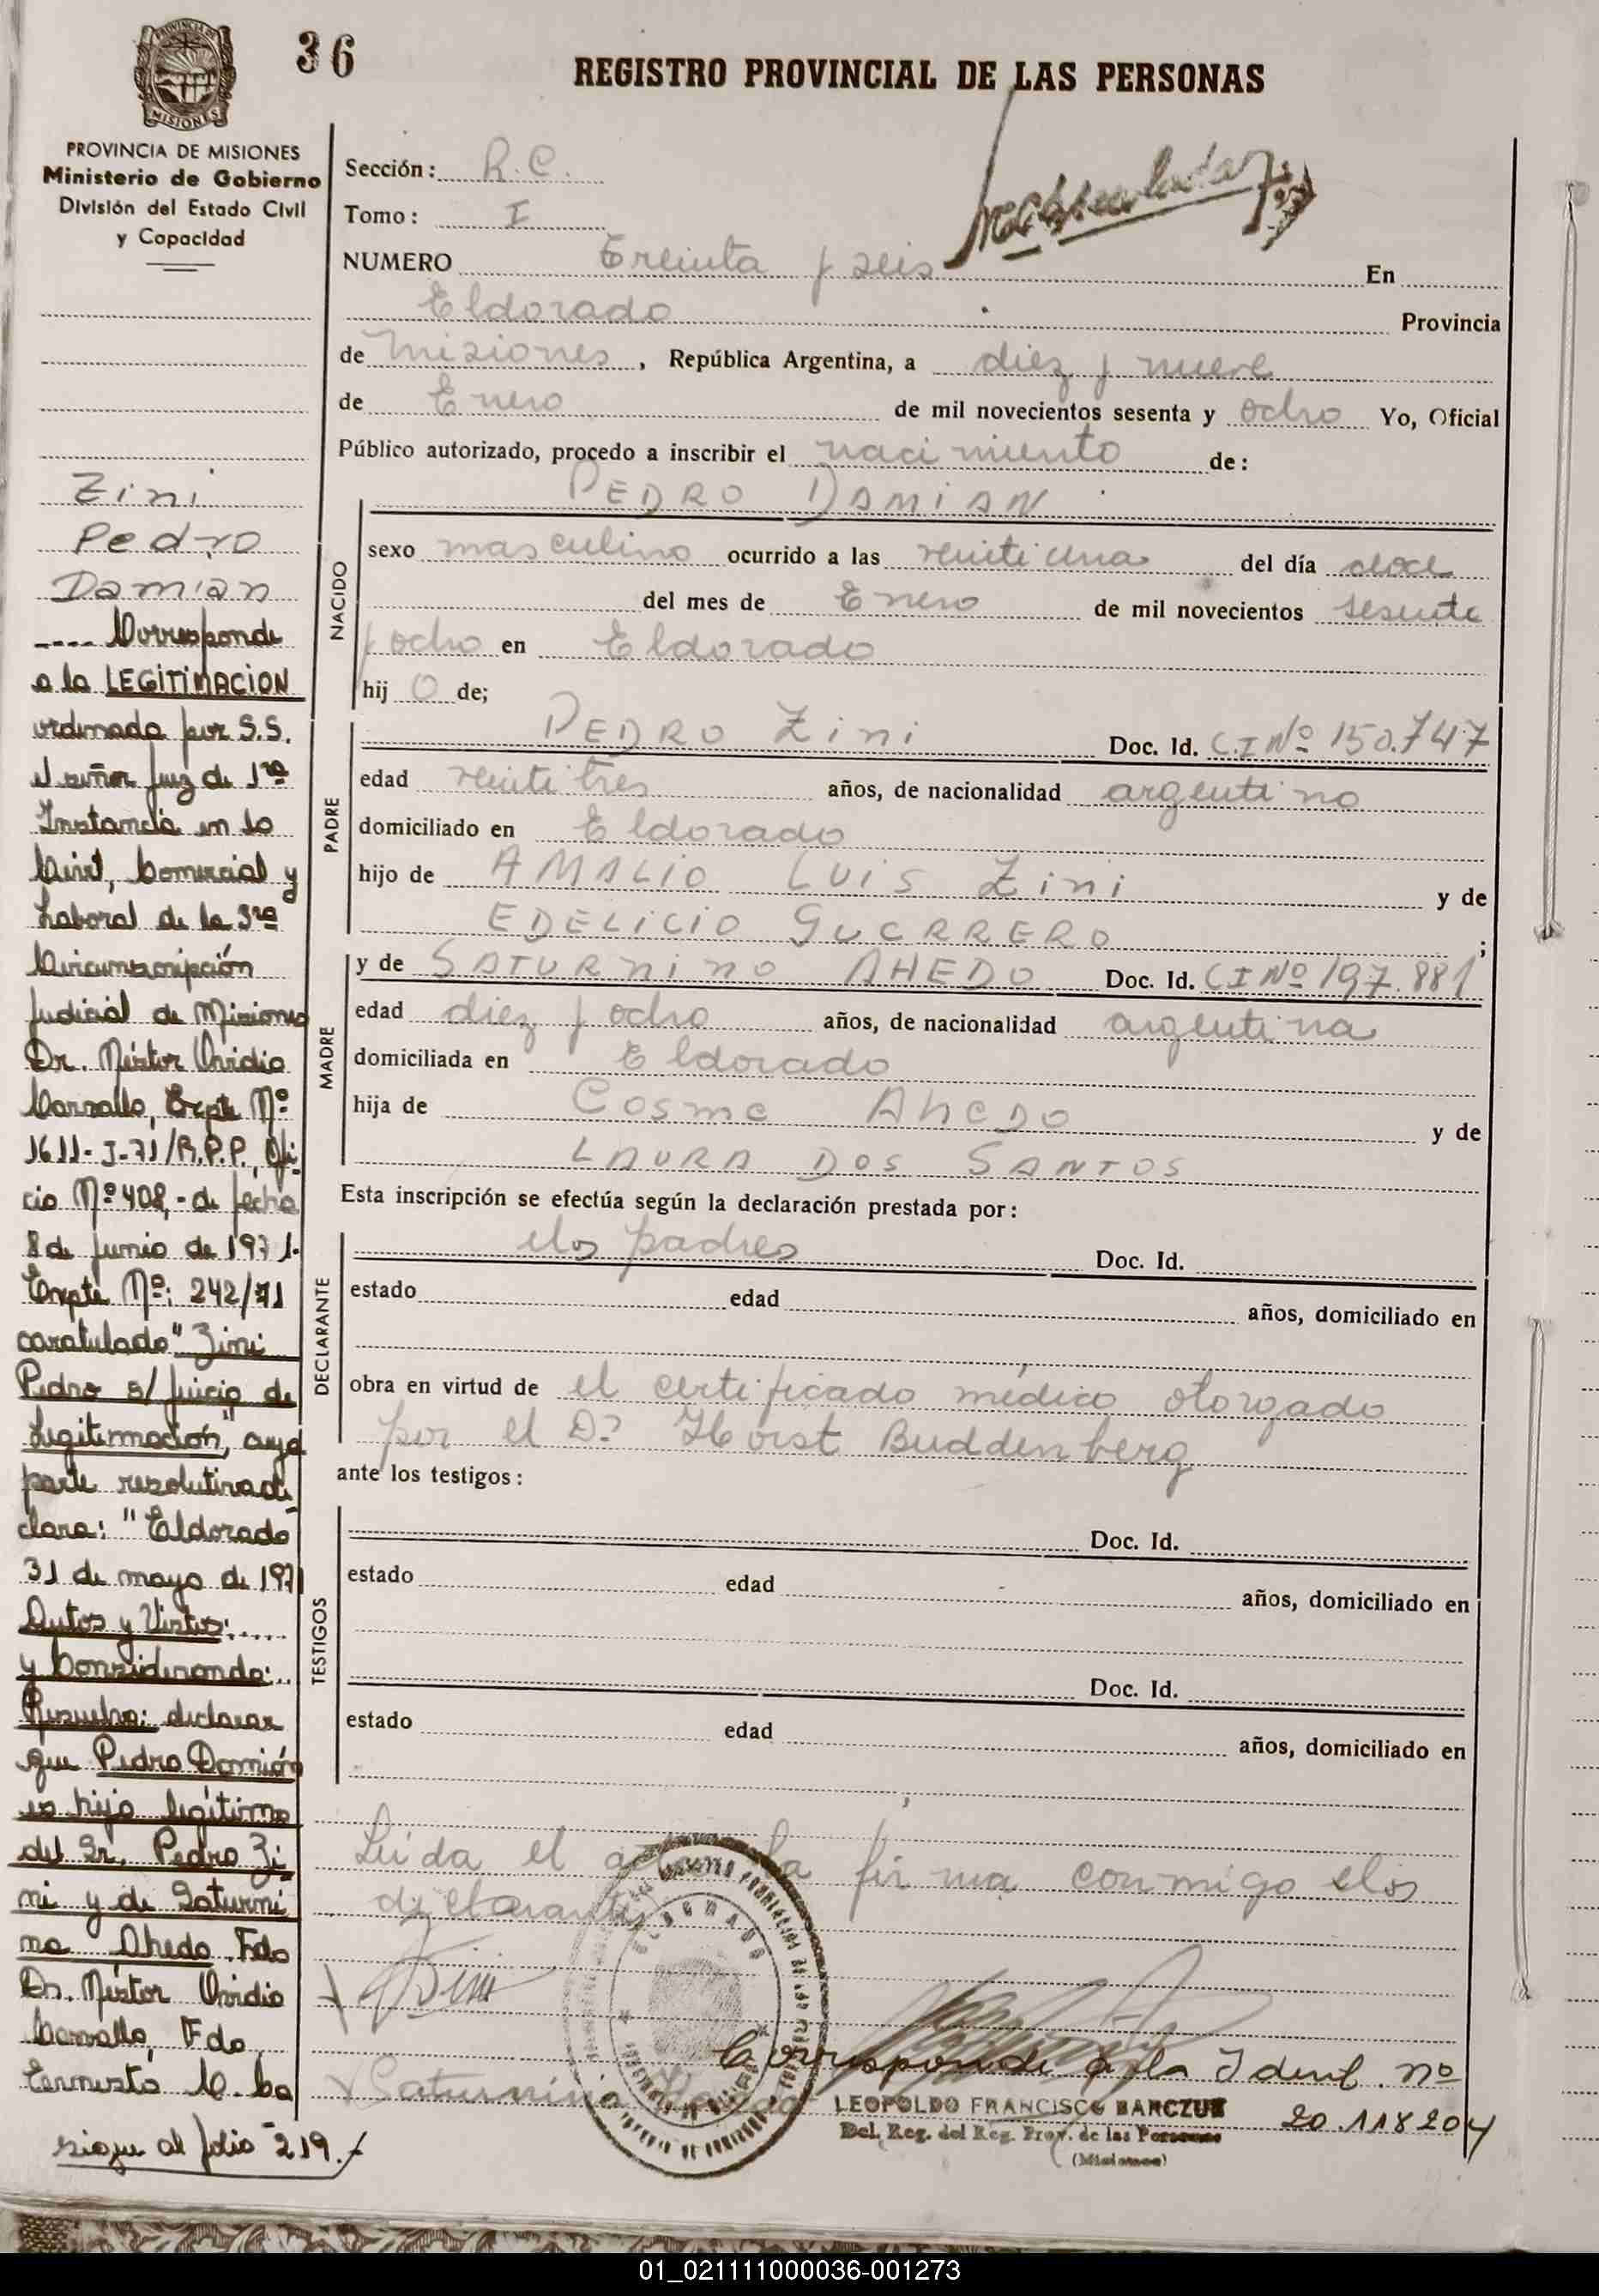 36
REGISTRO PROVINCIAL DE LAS PERSONAS
MISIONES
PROVINCIA DE MISIONES
Ministerio de Gobierno
División del Estado Civil
y Capacidad
Zini
Pedro
Damian
.... Corresponde
a la LEGITIMACION
ordenada por S.S.
el señor Juez de 1ra
Instancia en lo
Civil, Comercial y
Laboral de la 3ra
Circunscripción
Judicial de Misiones
Dr. Néstor Ovidio
Carvallo, Expte Nº
1611-J-71/R.P.P. Ofi
cio Nº 408,- de fecha
8 de junio de 1971.
Expte Nº: 242/71
caratulado "Zini
Pedro s/ juicio de
Legitimación", cuya
parte resolutiva de
clara: "Eldorado
31 de mayo de 1971
Autos y Vistos:.....
y Considerando:..
Resuelvo: declarar
que Pedro Damián
es hijo legítimo
del Sr. Pedro Zi
ni y de Saturni
na Ahedo. Fdo
Dr. Néstor Ovidio
Carvallo, Fdo.
Ernesto C. Ca
sigue al folio 219.-
Sección: R.C.
Tomo: I
NUMERO treinta y seis En
Eldorado Provincia
de Misiones, República Argentina, a diez y nueve
de Enero de mil novecientos sesenta y ocho Yo, Oficial
Público autorizado, procedo a inscribir el nacimiento de:
PEDRO DAMIAN
NACIDO
sexo masculino ocurrido a las veintiuna del día doce
del mes de Enero de mil novecientos sesenta
y ocho en Eldorado
hij o de;
PADRE
PEDRO Zini Doc. Id. C.I Nº 150.747
edad veintitres años, de nacionalidad argentino
domiciliado en Eldorado
hijo de AMALIO LUIS Zini y de
EDELICIO GUERRERO ;
MADRE
y de SATURNINO AHEDO Doc. Id. CI Nº 197.881
edad diez y ocho años, de nacionalidad argentina
domiciliada en Eldorado
hija de COSME AHEDO y de
LAURA DOS SANTOS
Esta inscripción se efectúa según la declaración prestada por:
DECLARANTE
los padres Doc. Id.
estado edad años, domiciliado en
obra en virtud de el certificado médico otorgado
por el Dr. Horst Buddenberg
ante los testigos:
TESTIGOS
Doc. Id.
estado edad años, domiciliado en
Doc. Id.
estado edad años, domiciliado en
Leída el acta la firma conmigo los
declarantes
ELDORADO
Zini
Corresponde a la Ident. nº
Saturnina Ahedo
LEOPOLDO FRANCISCO BARCZUK
20.118204
Del. Reg. del Reg. Prov. de las Personas
(Misiones)
01_021111000036-001273